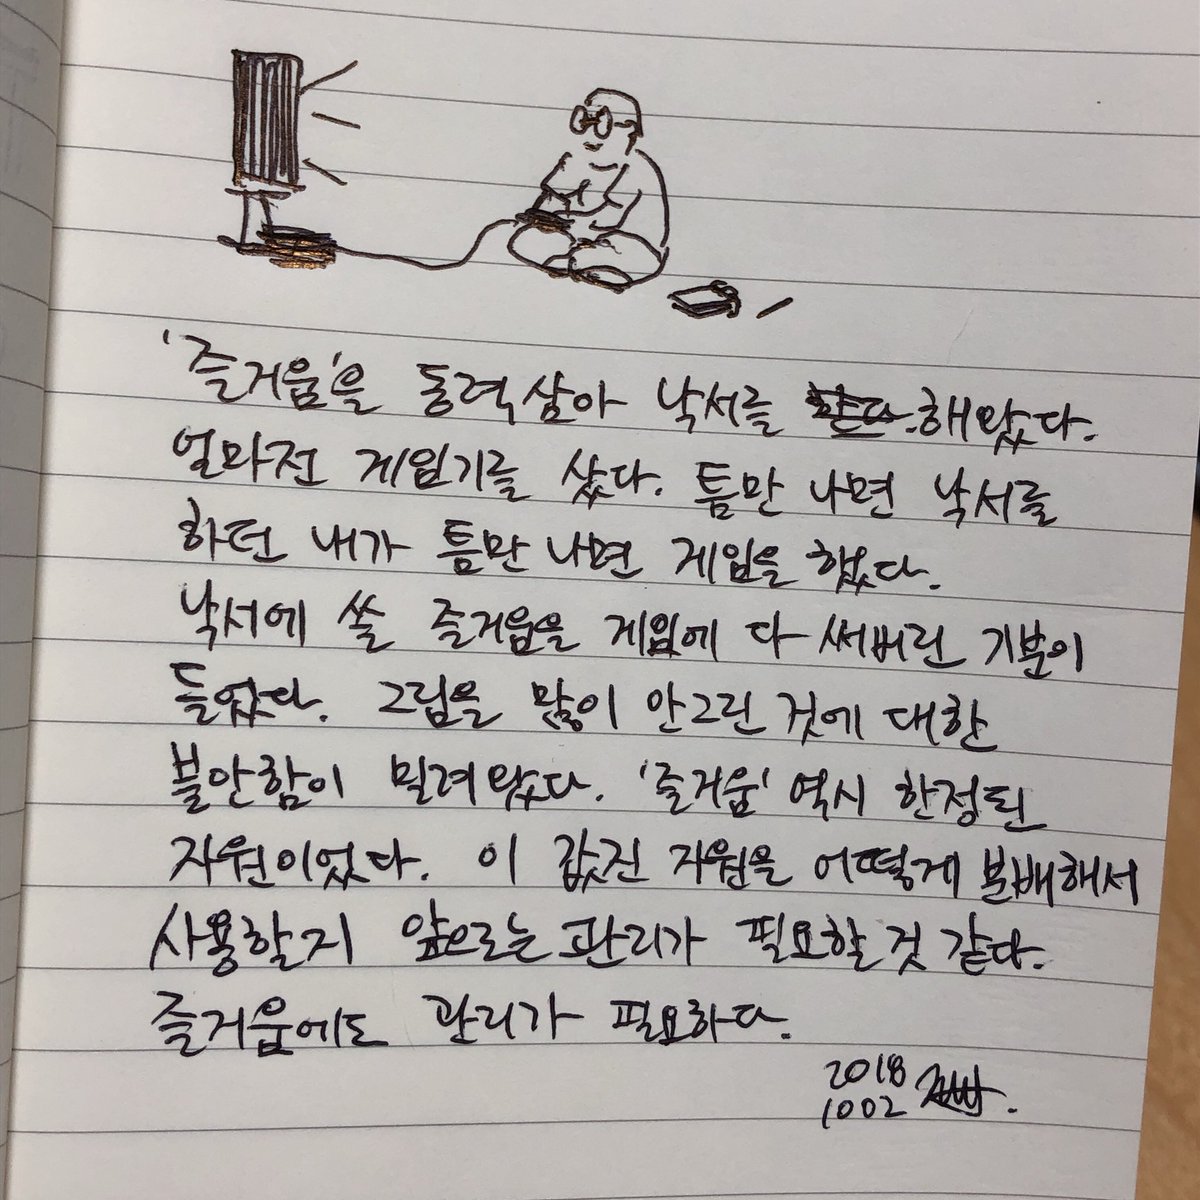 '즐거움'을 동력삼아 낙서를 해왔다.
얼마전 게임기를 샀다. 틈만 나면 낙서를
하던 내가 틈만나면 게임을 했다.
낙서에 쓸 즐거움을 게임에 다 써버린 기분이
들었다. 그림을 많이 안그린 것에 대한
불안함이 밀려왔다. '즐거움' 역시 한정된
자원이었다. 이 값진 자원을 어떻게 분배해서
사용할지 앞으로는 관리가 필요할것 같다.
즐거움에도 관리가 필요하다.
2018
1002